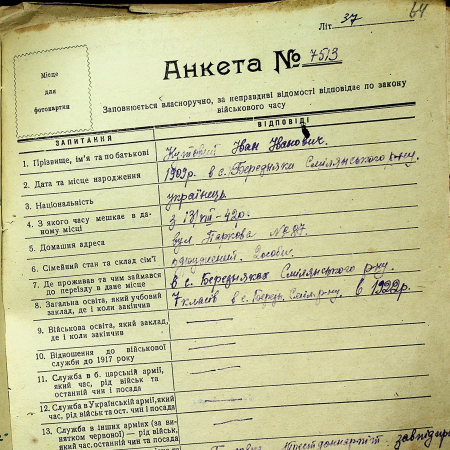 Літ. 37
64
Місце
для
фотокартки
Анкета № 7513
Заповнюється власноручно, за неправдиві відомості відповідає по закону
військового часу
ЗАПИТАННЯ
ВІДПОВІДІ
1. Прізвище, ім'я та по батькові
Кутовий Іван Іванович.
2. Дата та місце народження
1909 р. в с. Березняки Смілянського р-ну.
3. Національність
українець
4. З якого часу мешкає в да-
ному місці
з VIII – 42 р.
5. Домашня адреса
вул. Паркова №
6. Сімейний стан та склад сім'ї
7. Де проживав та чим займався
до переїзду в дане місце
в с. Березняках Смілянського р-ну.
8. Загальна освіта, який учбовий
заклад, де і коли закінчив
7 класів в с. Берез. Сміл. р-ну. в 1922 р.
9. Військова освіта, який заклад,
де і коли закінчив
10. Відношення до військової
служби до 1917 року
11. Служба в б. царській армії,
який час, рід військ та
ост. чин і посада
12. Служба в Українській армії, який
час, рід військ та ост. чин і посада
13. Служба в інших арміях (за ви-
нятком червоної) — рід військ,
який час, останній чин та посада